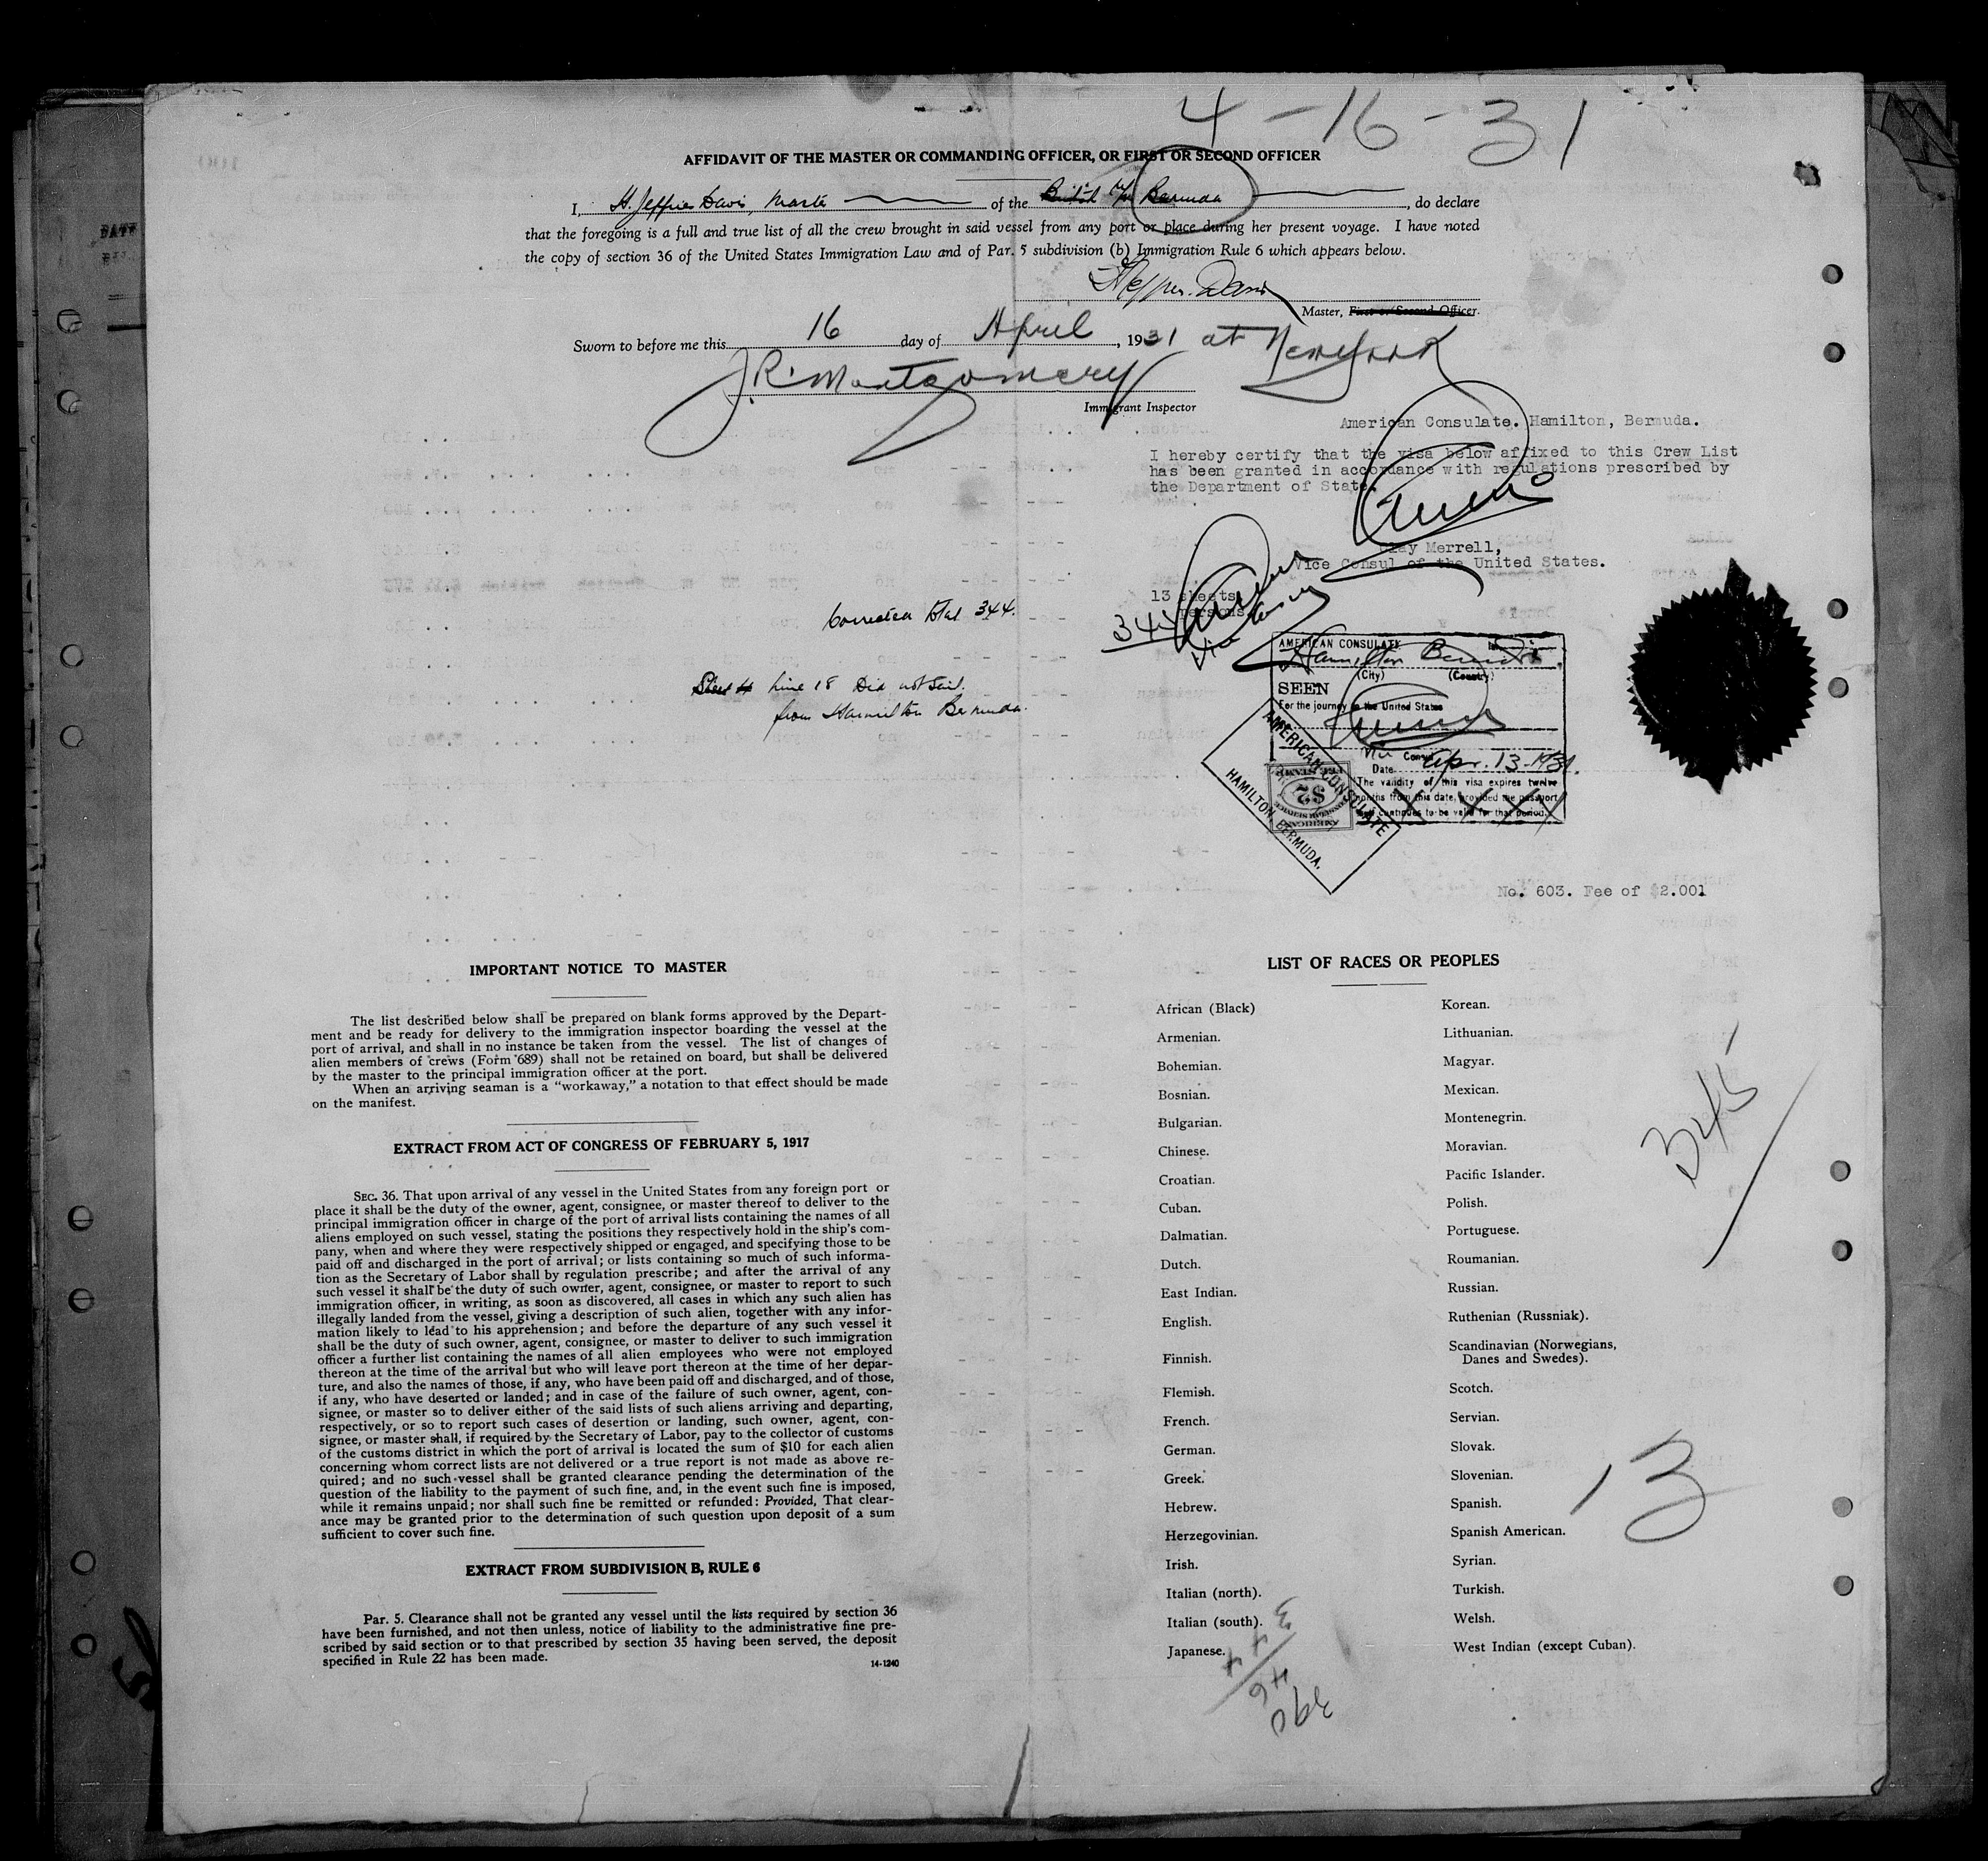 4-16-31
AFFIDAVIT OF THE MASTER OR COMMANDING OFFICER, OR FIRST OR SECOND OFFICER
I, H. Jeffries Davis, Master of the British M/V Bermuda, do declare
that the foregoing is a full and true list of all the crew brought in said vessel from any port or place during her present voyage. I have noted
the copy of section 36 of the United States Immigration Law and of Par. 5 subdivision (b) Immigration Rule 6 which appears below.
Davis
Master, First or Second Officer.
Sworn to before me this 16 day of April, 1931 at New York
J. R. Montgomery
Immigrant Inspector
American Consulate. Hamilton, Bermuda.
I hereby certify that the visa below affixed to this Crew List
has been granted in accordance with regulations prescribed by
the Department of State.
Clay Merrell,
Vice Consul of the United States.
13 sheets
345 persons
Corrected total 344.
Sheet 4 line 18 Did not sail.
from Hamilton Bermuda.
AMERICAN CONSULATE
Hamilton Bermuda
(City) (Country)
SEEN
For the journey to the United States
Vice Consul
Date Apr. 13-1931.
The validity of this visa expires twelve
months from this date, provided the passport
continues to be valid for that period.
AMERICAN CONSULATE
HAMILTON, BERMUDA.
$2
No. 603. Fee of $2.001
IMPORTANT NOTICE TO MASTER
The list described below shall be prepared on blank forms approved by the Depart-
ment and be ready for delivery to the immigration inspector boarding the vessel at the
port of arrival, and shall in no instance be taken from the vessel. The list of changes of
alien members of crews (Form 689) shall not be retained on board, but shall be delivered
by the master to the principal immigration officer at the port.
When an arriving seaman is a "workaway," a notation to that effect should be made
on the manifest.
EXTRACT FROM ACT OF CONGRESS OF FEBRUARY 5, 1917
SEC. 36. That upon arrival of any vessel in the United States from any foreign port or
place it shall be the duty of the owner, agent, consignee, or master thereof to deliver to the
principal immigration officer in charge of the port of arrival lists containing the names of all
aliens employed on such vessel, stating the positions they respectively hold in the ship's com-
pany, when and where they were respectively shipped or engaged, and specifying those to be
paid off and discharged in the port of arrival; or lists containing so much of such informa-
tion as the Secretary of Labor shall by regulation prescribe; and after the arrival of any
such vessel it shall be the duty of such owner, agent, consignee, or master to report to such
immigration officer, in writing, as soon as discovered, all cases in which any such alien has
illegally landed from the vessel, giving a description of such alien, together with any infor-
mation likely to lead to his apprehension; and before the departure of any such vessel it
shall be the duty of such owner, agent, consignee, or master to deliver to such immigration
officer a further list containing the names of all alien employees who were not employed
thereon at the time of the arrival but who will leave port thereon at the time of her depar-
ture, and also the names of those, if any, who have been paid off and discharged, and of those,
if any, who have deserted or landed; and in case of the failure of such owner, agent, con-
signee, or master so to deliver either of the said lists of such aliens arriving and departing,
respectively, or so to report such cases of desertion or landing, such owner, agent, con-
signee, or master shall, if required by the Secretary of Labor, pay to the collector of customs
of the customs district in which the port of arrival is located the sum of $10 for each alien
concerning whom correct lists are not delivered or a true report is not made as above re-
quired; and no such vessel shall be granted clearance pending the determination of the
question of the liability to the payment of such fine, and, in the event such fine is imposed,
while it remains unpaid; nor shall such fine be remitted or refunded: Provided, That clear-
ance may be granted prior to the determination of such question upon deposit of a sum
sufficient to cover such fine.
EXTRACT FROM SUBDIVISION B, RULE 6
Par. 5. Clearance shall not be granted any vessel until the lists required by section 36
have been furnished, and not then unless, notice of liability to the administrative fine pre-
scribed by said section or to that prescribed by section 35 having been served, the deposit
specified in Rule 22 has been made.
14-1240
LIST OF RACES OR PEOPLES
African (Black)
Armenian.
Bohemian.
Bosnian.
Bulgarian.
Chinese.
Croatian.
Cuban.
Dalmatian.
Dutch.
East Indian.
English.
Finnish.
Flemish.
French.
German.
Greek.
Hebrew.
Herzegovinian.
Irish.
Italian (north).
Italian (south).
Japanese.
Korean.
Lithuanian.
Magyar.
Mexican.
Montenegrin.
Moravian.
Pacific Islander.
Polish.
Portuguese.
Roumanian.
Russian.
Ruthenian (Russniak).
Scandinavian (Norwegians,
Danes and Swedes).
Scotch.
Servian.
Slovak.
Slovenian.
Spanish.
Spanish American.
Syrian.
Turkish.
Welsh.
West Indian (except Cuban).
345
13
344
46
390